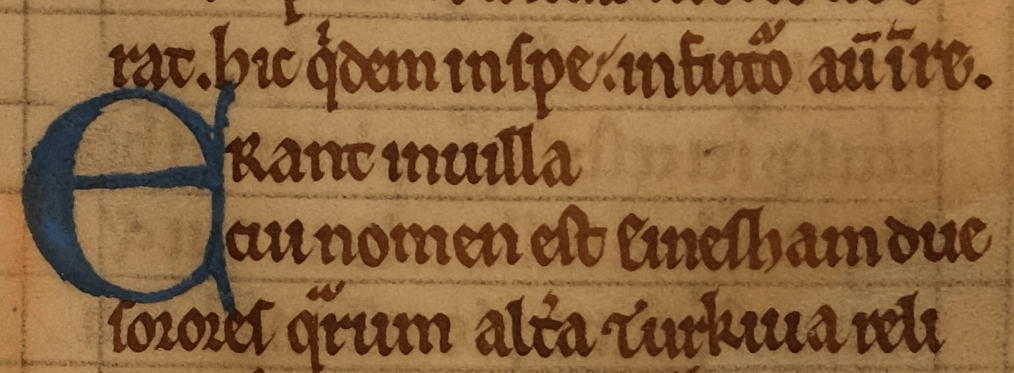 rat. hic qͥdem in spe. in futuͦ aū in re.
ERant in uilla
cui nomen est Einesham due
sorores qͣrum altͣa Turkiua reli